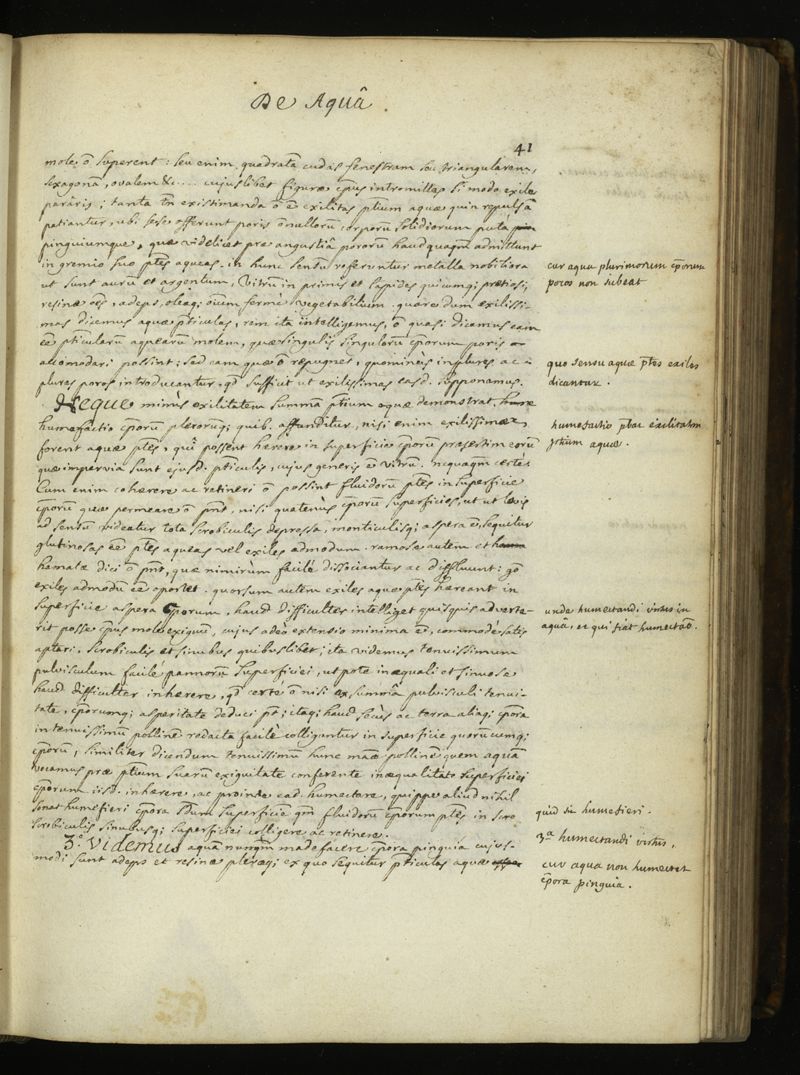 De Aquâ.
41
mole õ superent : seu enim, quadratã cudas fenestram seu triangularem,
sexagonã, ovalem &c.... cujuslibet figuræ cp̃us intromittas si modo exile
pararis ; tanta tñ existimanda õ ẽ exilitas p̃tium aquæ quin repulsã
patiantur, ubi sese offerunt poris õnullorũ corporũ solidiorum puta
pinguiumque, quæ videlicet præ angustiâ pororũ haudquaqm̃ admittunt
in gremio suo p̃tes aqueas. in hunc sensũ referuntur metalla nobiliora
ut sunt aurũ et argentum, vitrũ in primis et lapides quicumq; prætiosi;
resinæ oẽs, adeps, oleaq; õium fermè vegetabilium. quare dum exilissi-
mas dicemus aquæ p̃ticulas, rem ita intelligemus, õ quasi dicamus eam
ẽe p̃ticularũ aquearũ molem, quæ singulis singulorũ cp̃orum poris
accomodari possint ; sed eam quæ õ repugnet, quominùs in plures ac
plures poros introducantur, qd̃ sufficit ut exilissimas easd. supponamus.
Neque minùs exilitatem summã p̃tium aquæ demonstrat
humefactio cp̃orũ plerorũq; quib. affunditur, nisi enim exilissimæ
forent aquæ p̃tes, quî possent hærere in superficie cp̃orũ præsertim eorũ
quæ impervia sunt ejusd. p̃ticulis, cujus generis ẽ vitrũ. nequaqm̃ certè.
Cum enim cohærere ac retineri õ possint fluidorũ p̃tes in superficie
cp̃orũ quæ permeare õ p̃nt, nisi quatenùs cp̃orũ superficies, ut ut levis
ad sensũ videatur tota scrobiculis depressa, monticulisq; aspera ẽ, sequitur
glutinosas ẽe p̃tes aqueas vel exiles admodum. ramosæ autem et
hamatæ dici õ p̃nt, quæ nimirùm facilè dissociantur ac diffluunt : gõ
exiles admodũ ẽe oportet. quorsum autem exiles aquæ p̃tes hæreant in
superficie aspera cp̃orum, haud difficulter intelliget quisquis adverte-
rit posse cp̃us mole exiguũ, cujus adeò extensio minima ẽ, commodè satis
aptari, scrobiculis et sinubus quibuslibet ; ita videmus tenuissimum
pulvisculum facilè pannorũ superficiei, utpote inæquali et sinuosæ
haud difficulter inhærere, qd̃ certè õ nisi ex summâ pulvisculi tenui-
tate, cp̃orumq; asperitate deduci p̃t ; itaq; haud secùs ac terra aliaq; cp̃ora
in tenuissimũ pollinẽ redacta facilè colliguntur in superficie quorũcumq;
cp̃orũ, similiter dicendum tenuissimũ hunc pollinẽ quem aquã
vocamus præ p̃tium suarũ exiguitate conferente inæqualitate superficiei
cp̃orum iisd. inhærere, ac proinde ead. humectare, quippe aliud nihil
sonat humefieri cp̃ora superficiẽ qm̃ fluidorũ cp̃orum p̃tes in suo
scrobiculis sinubusq; superficiei colligere ac retinere.
3.° Videmus aquã nunqm̃ madefacere cp̃ora pinguia cujus-
modi sunt adeps et resinæ pleræq; ex quo sequitur p̃ticulas aquæ
cur aqua plurimorum cp̃orum
poros non subeat
quo sensu aquæ p̃tes exiles
dicantur.
humefactio p̃bat exilitatem
p̃tium aquæ.
unde humectandi virtus in
aquâ, et qui fiat humectaõ.
quid sit humefieri.
3.ª humectandi virtus.
cur aqua non humectet
cp̃ora pinguia.